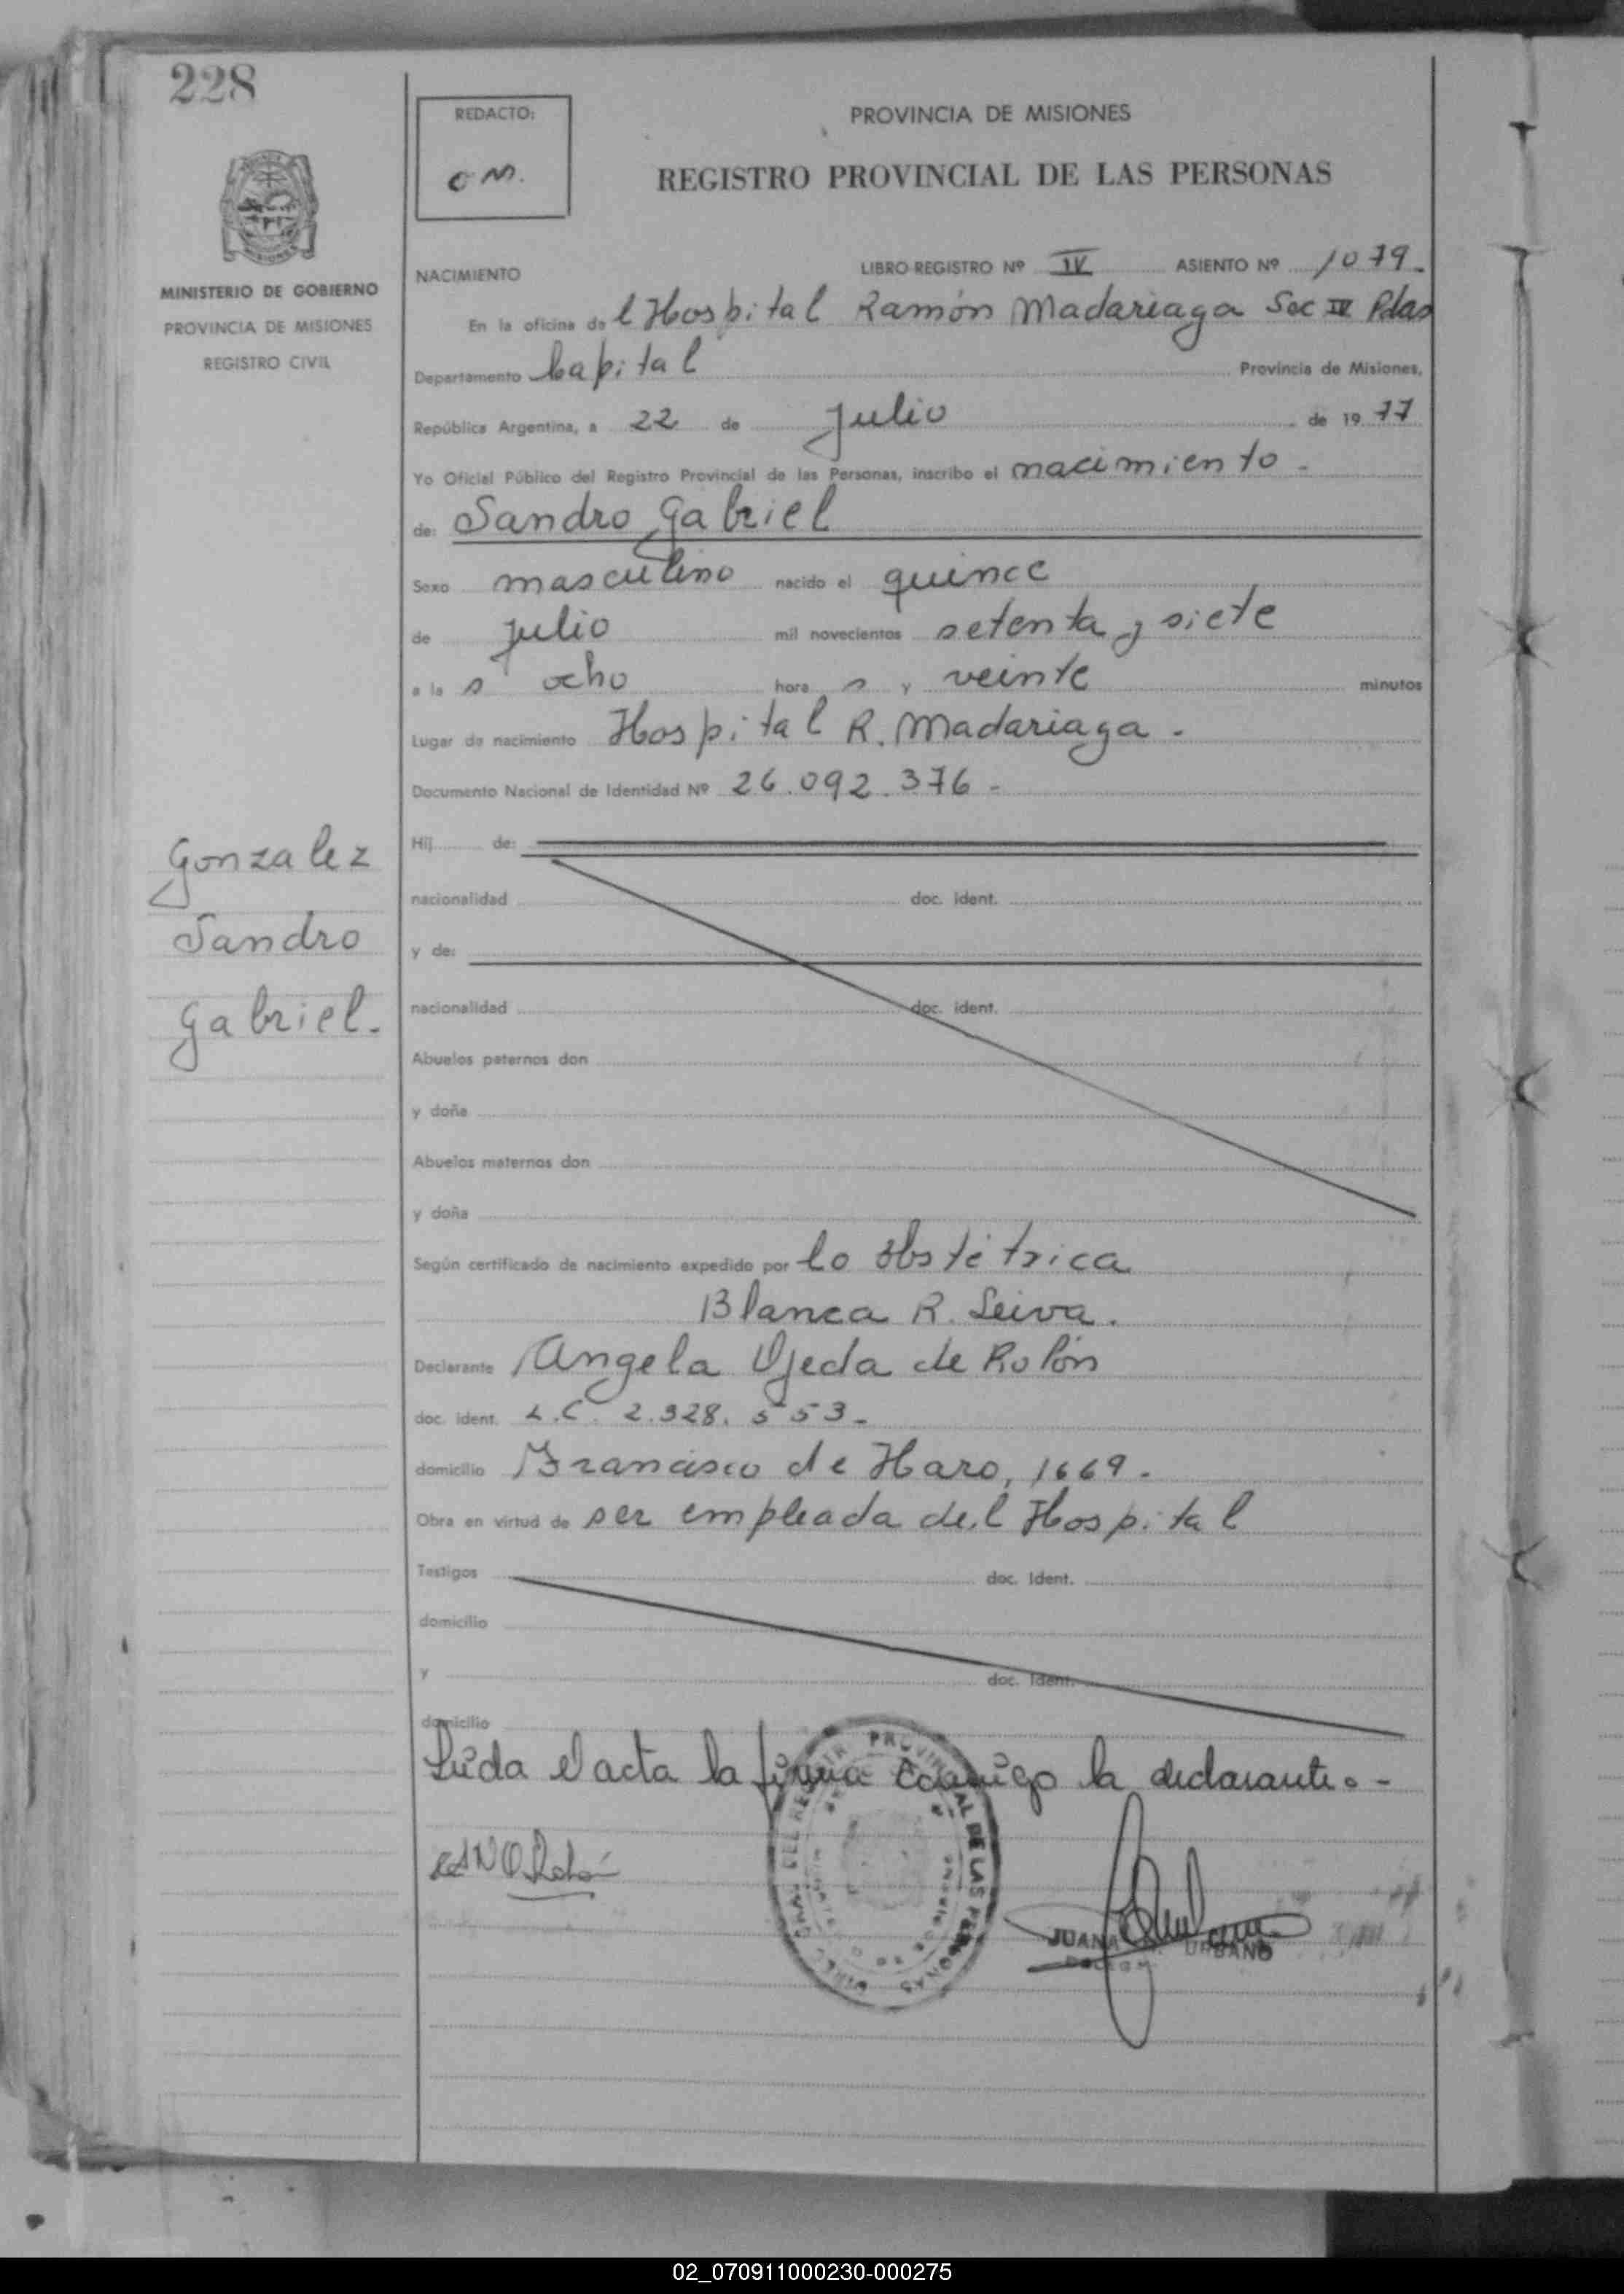 228
REDACTO:
O M.
PROVINCIA DE MISIONES
REGISTRO PROVINCIAL DE LAS PERSONAS
MINISTERIO DE GOBIERNO
PROVINCIA DE MISIONES
REGISTRO CIVIL
NACIMIENTO
LIBRO REGISTRO Nº IV ASIENTO Nº 1079.
En la oficina de l Hospital Ramón Madariaga Sec IV Pdas
Departamento Capital Provincia de Misiones,
República Argentina, a 22 de Julio de 1977
Yo Oficial Público del Registro Provincial de las Personas, inscribo el nacimiento -
de: Sandro Gabriel
Sexo masculino nacido el quince
de julio mil novecientos setenta y siete
a la s ocho hora s y veinte minutos
Lugar de nacimiento Hospital R. Madariaga -
Documento Nacional de Identidad Nº 26.092.376 -
Gonzalez
Sandro
Gabriel.
Hij de:
nacionalidad doc. ident.
y de:
nacionalidad doc. ident.
Abuelos paternos don
y doña
Abuelos maternos don
y doña
Según certificado de nacimiento expedido por la obstétrica
Blanca R. Leiva.
Declarante Angela Ojeda de Rolón
doc. ident. L.C. 2.328.553-
domicilio Francisco de Haro, 1669.
Obra en virtud de ser empleada del Hospital
Testigos doc. Ident.
domicilio
y doc. Ident.
domicilio
Leída el acta la firma conmigo la declarante.-
PROVINCIAL DE LAS PERSONAS
JUANA URBANO
02_070911000230-000275